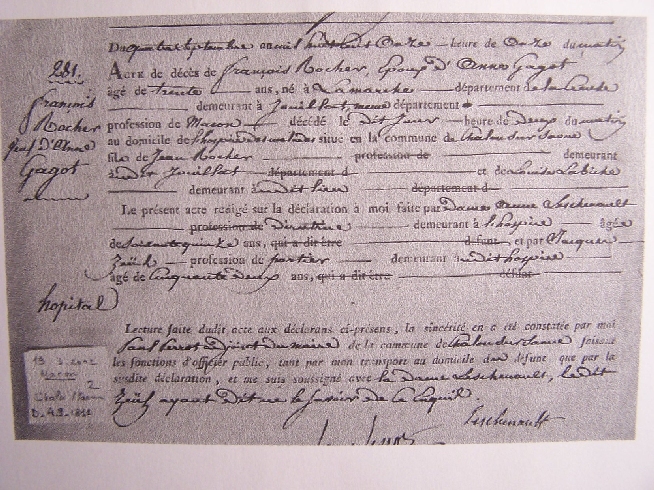 Du quatre Septembre an mil huit cent Onze — heure de Onze du matin
281. Acte de décès de François Rocher, Epoux d'Anne Gagot
âgé de trente — ans, né à Lamarche — département de la
François demeurant à Jouilhat, même département
Rocher profession de Macon — décédé le dit Jour — heure de Deux du matin
Epoux d'Anne au domicile de l'hospice des malades situé en la commune de Chalon sur Saone
Gagot fils de Jean Rocher — profession de — demeurant
à Dit Jouilhat — département d — et de Louise Labiche
demeurant à Dit lieu — département d
Le présent acte rédigé sur la déclaration à moi faite par Dame Leschenault
profession de Directrice — demeurant à l'hospice — âgée
de Soixante quinze ans, qui a dit être — défunt, et par Jacques
— profession de portier — demeurant au dit hospice
âgé de Cinquante Deux ans, qui a dit être — défunt
hopital
Lecture faite dudit acte aux déclarans ci-présens, la sincérité en a été constatée par moi
Paul adjoint du maire de la commune de Chalon sur Saone faisant
les fonctions d'officier public, tant par mon transport au domicile du défunt que par la
susdite déclaration, et me suis soussigné avec la Dame Leschenault, le dit
ayant Dit ne le savoir de ce enquis.
Leschenault
19 3.2002
Macon
2